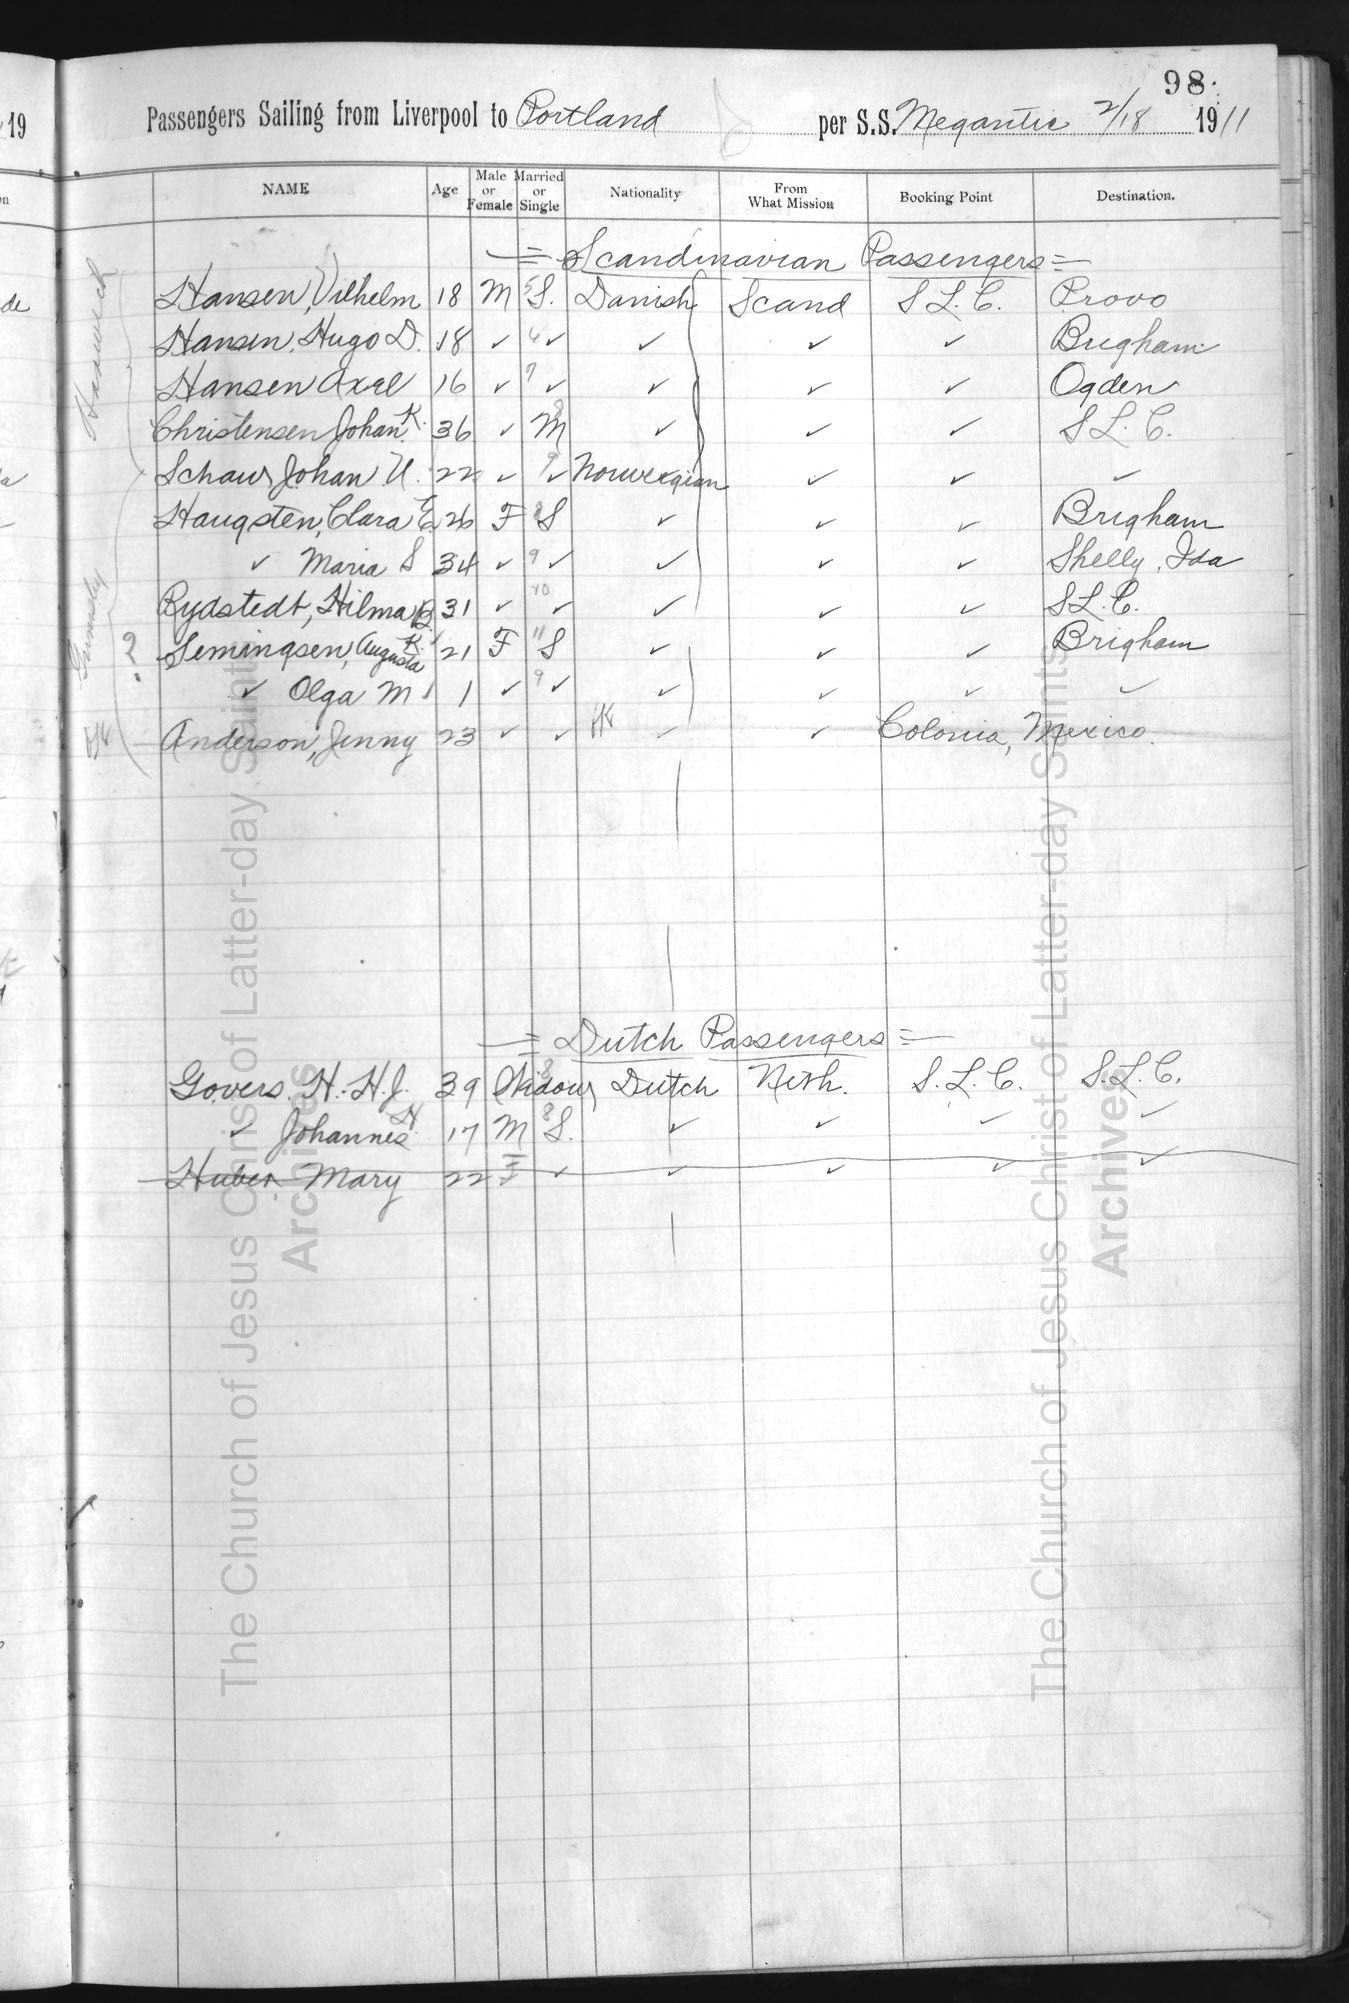 98.
Passengers Sailing from Liverpool to Portland per S.S. Megantic 2/18 1911
19
NAME Age Male or Female Married or Single Nationality From What Mission Booking Point Destination.
= Scandinavian Passengers =
Harwich
Hansen, Vilhelm 18 M 5 S. Danish Scand S.L.C. Provo
Hansen, Hugo D. 18 ✓ 6 ✓ ✓ ✓ ✓ Brigham
Hansen Axel 16 ✓ 7 ✓ ✓ ✓ ✓ Ogden
Christensen Johan K. 36 ✓ 8 M ✓ ✓ ✓ S.L.C.
Schaur Johan U. 22 ✓ 9 ✓ Norwegian ✓ ✓ ✓
Haugsten, Clara E. 26 F 8 S ✓ ✓ ✓ Brigham
✓ Maria S 34 ✓ 9 ✓ ✓ ✓ ✓ Shelly, Ida
Grimsby
Rydstedt, Hilma B. 31 ✓ 10 ✓ ✓ ✓ ✓ S.L.C.
? Semingsen, Augusta K. 21 F 11 S ✓ ✓ ✓ Brigham
✓ Olga M 1 ✓ 9 ✓ ✓ ✓ ✓ ✓
Anderson, Jenny 23 ✓ ✓ ✓ ✓ Colonia, Mexico.
= Dutch Passengers =
Govers. H. H. J. 39 Widow 8 Dutch Neth. S.L.C. S.L.C.
✓ Johannes H. 17 M 8 S. ✓ ✓ ✓ ✓
Huber Mary 22 F ✓ ✓ ✓ ✓ ✓
The Church of Jesus Christ of Latter-day Saints
Archives
The Church of Jesus Christ of Latter-day Saints
Archives